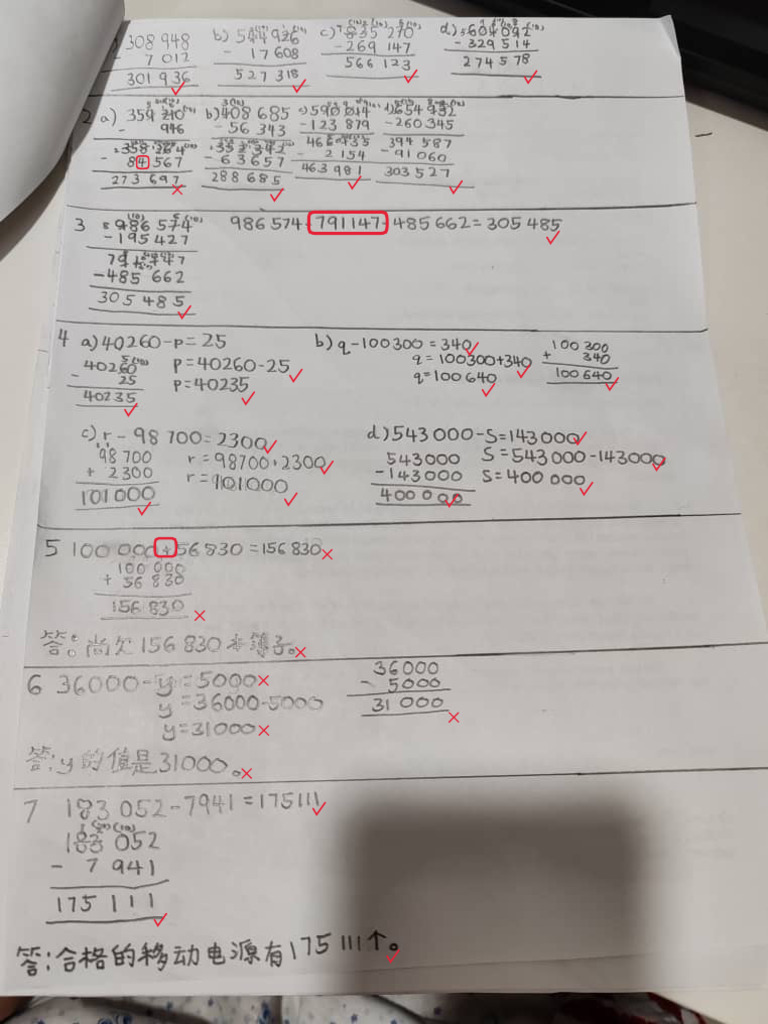 308 948
- 7 012
301 936
b) 544 926
- 17 608
527 318
c) 835 270
- 269 147
566 123
d) 604 092
- 329 514
274 578
2 a) 359 210
- 946
358 264
- 84 567
273 697
b) 408 685
- 56 343
352 342
- 63 657
288 685
c) 590 014
- 123 879
466 135
- 2 154
463 981
d) 654 932
- 260 345
394 587
- 91 060
303 527
3 986 574
- 195 427
791 147
- 485 662
305 485
986 574 - 791147 - 485 662 = 305 485
4 a) 40260 - p = 25
40260
- 25
40235
p = 40260 - 25
p = 40235
b) q - 100300 = 340
q = 100300 + 340
q = 100 640
100 300
+ 340
100 640
c) r - 98 700 = 2300
98 700
+ 2300
101000
r = 98700 + 2300
r = 101000
d) 543 000 - S = 143 000
543 000
- 143 000
400 000
S = 543 000 - 143 000
S = 400 000
5 100 000 + 56 830 = 156 830
100 000
+ 56 830
156 830
答:尚欠156 830本簿子。
6 36000 - y = 5000
y = 36000 - 5000
y = 31000
36000
- 5000
31 000
答:y的值是31000。
7 183 052 - 7941 = 175111
183 052
- 7 941
175 111
答:合格的移动电源有175 111个。